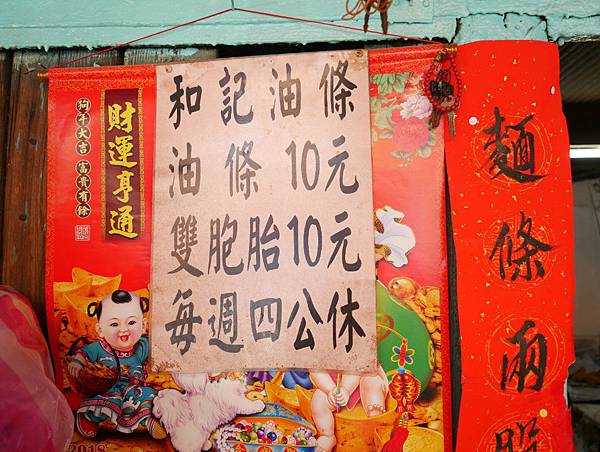 和記油條
油條 10元
雙胞胎10元
每週四公休
財運亨通
狗年大吉 富貴有餘
2018
麵條兩